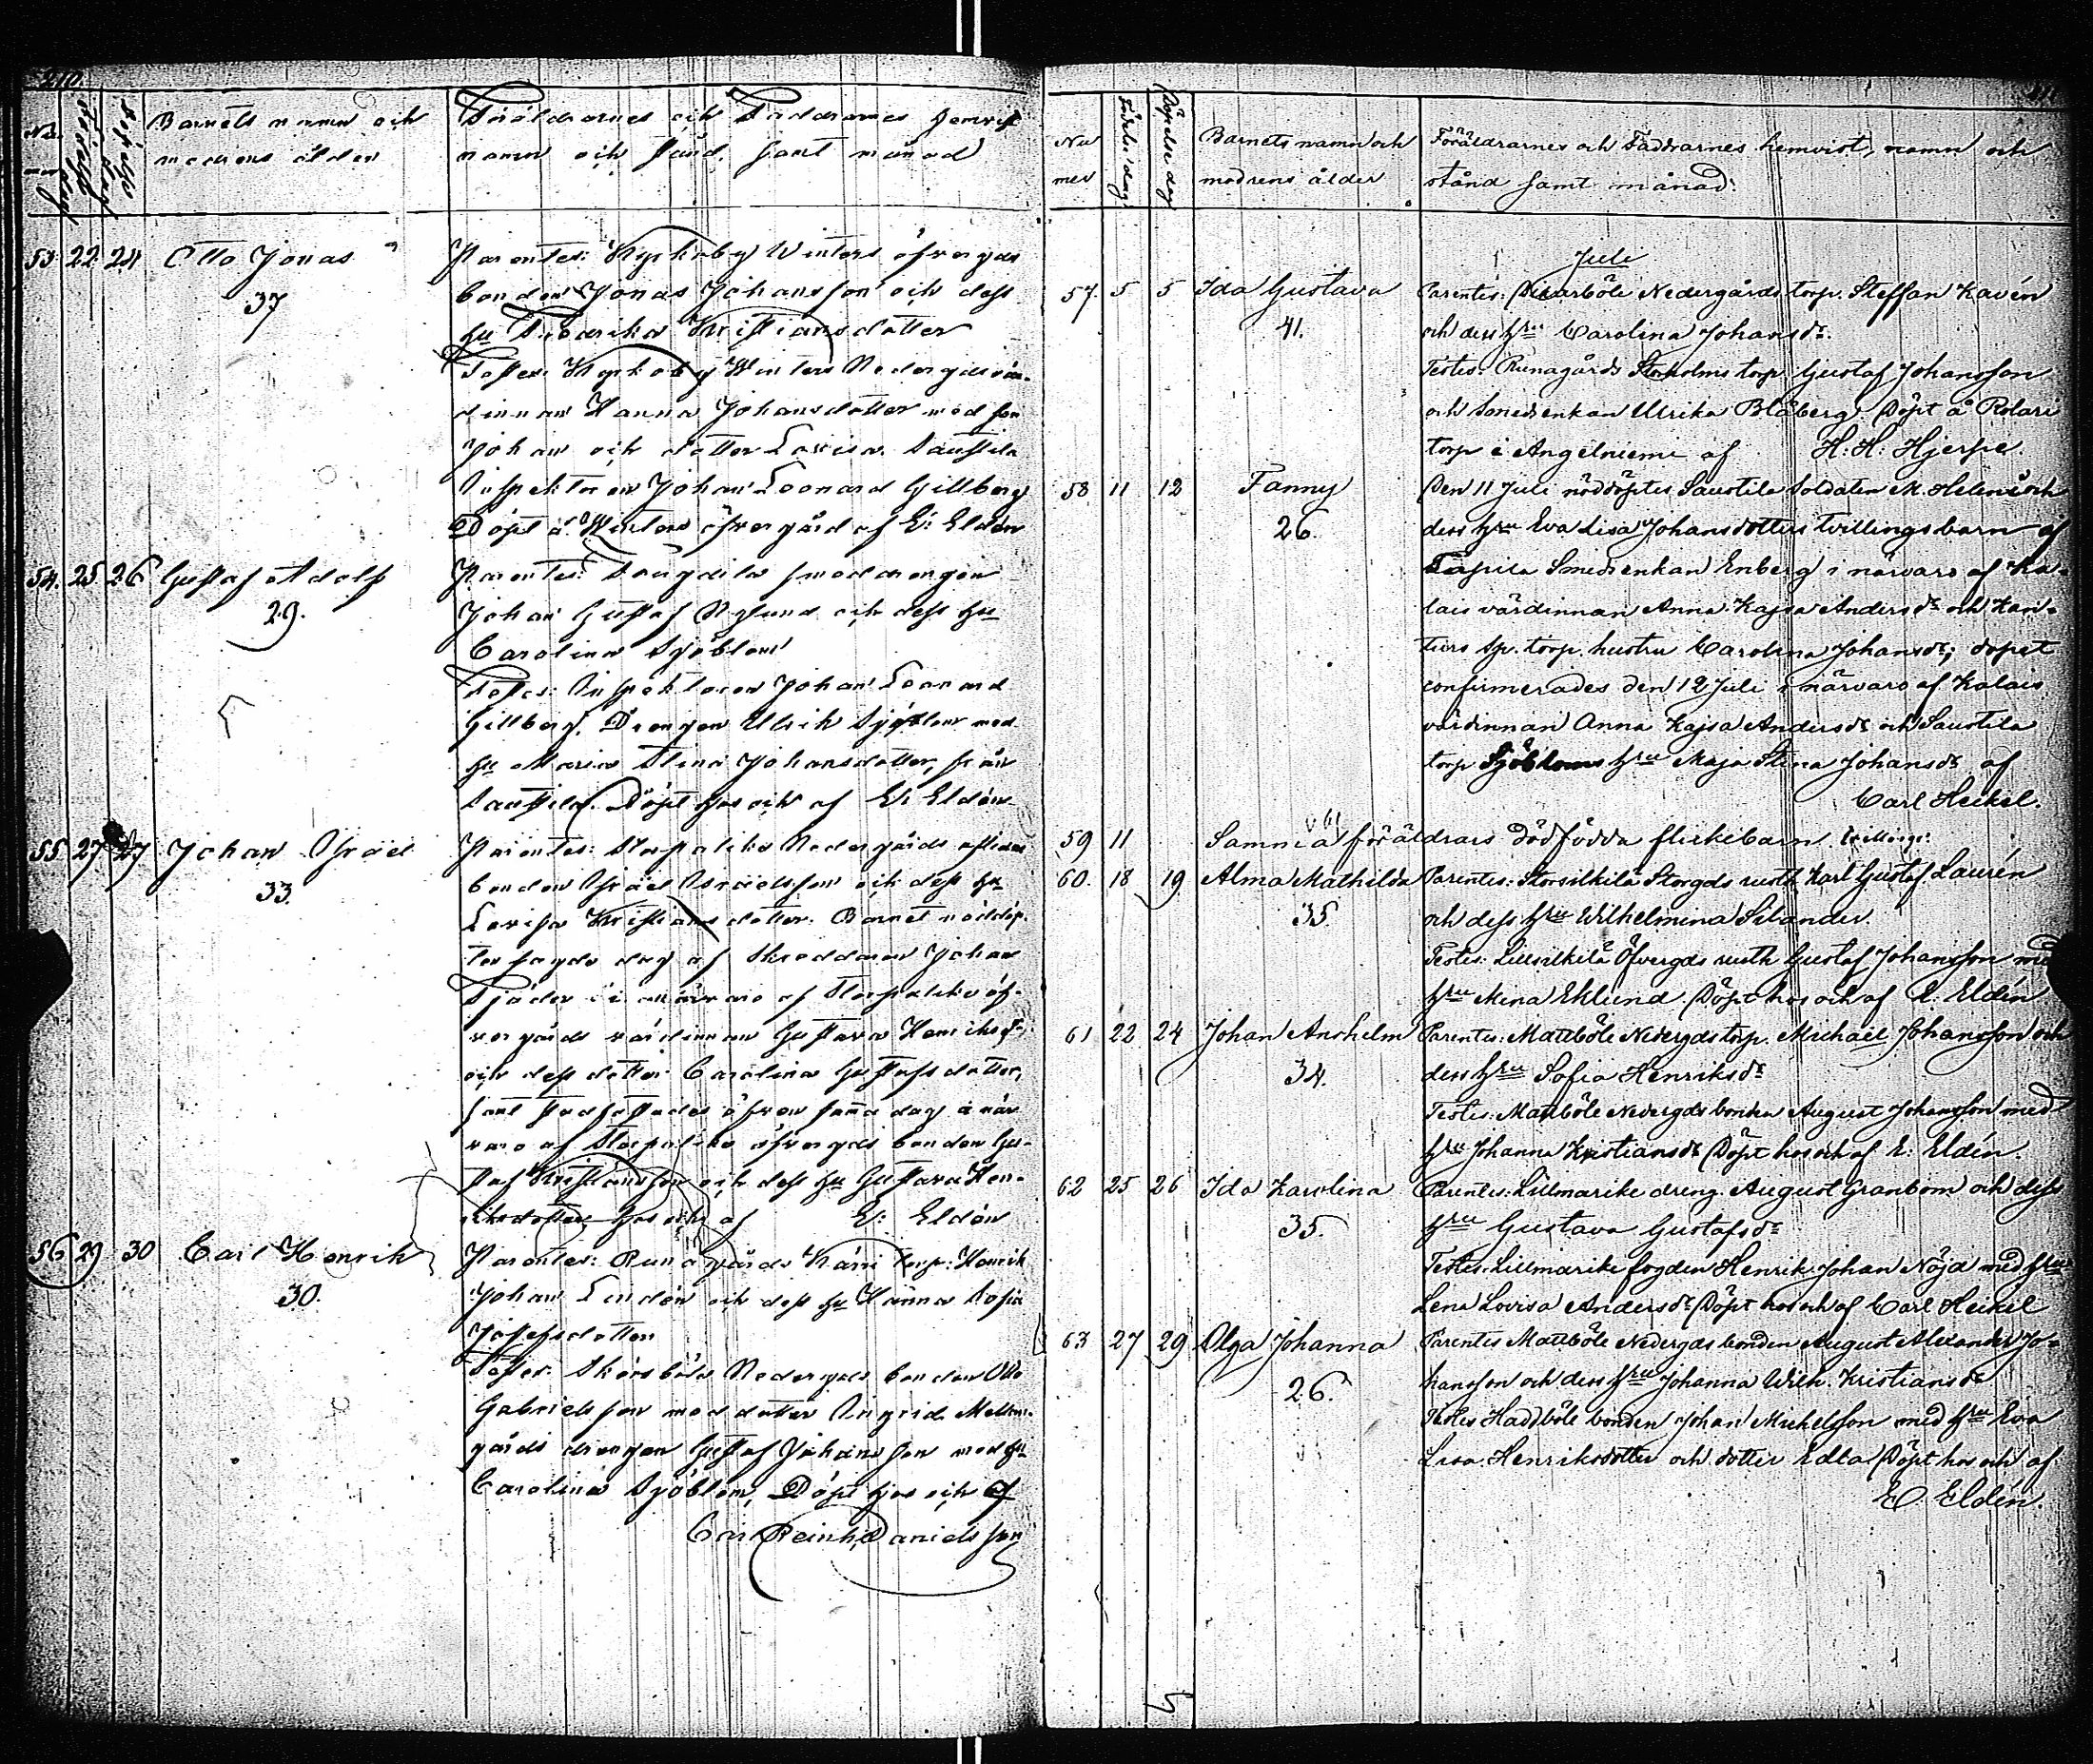 210.
Barnets namn och
modrens ålder
Föräldrarnes och Faddrarnes hemvist
namn och stånd, samt månad
53 22 24 Otto Jonas
37
Parentes: Kyrkoby Winters öfvergds
bonden Jonas Johansson och dess
hu Fredrika Kristiansdotter
Testes: Kyrkoby Winters Nedergds vär-
dinnan Hanna Johansdotter med son
Johan och dotter Lovisa. Saustila
Inspektoren Johan Leonard Gillberg
Döpt å Winters öfvergård af E: Eldén
54. 25 26 Gustaf Adolf
29.
Parentes: smeddrengen
Johan Gustaf Nylund och dess hu
Carolina Sjöblom
Testes: Inspektoren Johan Leonard
Gillberg. Drengen Ulrik Sjöblom med
hu Maria Stina Johansdotter, från
Saustila. Döpt hos och af E: Eldén
55 27 27 Johan Israël
33.
Parentes: Storpaliko Nedergårds
bonden Israël Israelsson och dess hu
Lovisa Kristiansdotter. Barnet nöddöp-
tes dag af Skreddaren Johan
Sjöder i närvaro af Storpaliko öf-
vergårds värdinnan Gustava
och dess dotter Carolina Gustafsdotter,
samt stadfästades öfven samma dag i när-
varo af Storpaliko öfvergds bonden Gu-
staf Kristiansson och dess hu Gustava Hen-
riksdotter hos och af E: Eldén
56 29 30 Carl Henrik
30.
Parentes: Runagårds Kärri torp: Henrik
Johan Lindén och dess hu Hanna Sofia
Josefsdotter
Testes: Skinnböle Nedergds bonden Otto
Gabrielsson med dotter Ingrid. Mellan-
gårds drengen Gustaf Johansson med hu
Carolina Sjöblom, Döpt hos och af
Carl Reinh. Danielsson
Nu
mer
Födelsedag
Döpelsedag
Barnets namn och
modrens ålder
Föräldrarnes och Faddrarnes hemvist, namn och
stånd samt månad:
Juli
57. 5 5 Ida Gustava
41.
Parentes: Nedergårds torp. Steffan Kavén
och dess hru Carolina Johansdr.
Testes: Runagårds Storholms torp. Gustaf Johansson
och Smedenkan Ulrika Blåberg Döpt å Rolari
torp i Angelniemi af H: H: Hjerpe.
58 11 12 Fanny
26.
Den 11 Juli nöddöptes Saustila Soldaten M. Helenii och
dess hru Eva Lisa Johansdotters tvillingsbarn af
Smedenkan Enberg i närvaro af Ka-
lais värdinnan Anna Kajsa Andersdr och Kan-
turs Sp. torp. hustru Carolina Johansdr; dopet
confirmerades den 12 Juli i närvaro af Kalais
värdinnan Anna Kajsa Andersdr och Saustila
torp Sjöbloms hru Maja Stina Johansdr af
Carl Heikel.
59 11 Samma föräldrars dödfödda flickebarn. tvillings:
60. 18 19 Alma Mathilda
35.
Parentes: Storsilkilä Storgds rusth. Karl Gustaf Laurén
och dess hru Wilhelmina Silander.
Testes: Lillsilkilä Öfvergds rusth Gustaf Johansson med
hru Mina Eklund. Döpt hos och af E: Eldén
61 22 24 Johan Anshelm
34.
Parentes: Mattböle Nedergds torp. Michaël Johansson och
dess hru Sofia Henriksdr
Testes: Mattböle Nedergds bonden August Johansson med
hru Johanna Kristiansdr Döpt hos och af E: Eldén.
62 25 26 Ida Karolina
35.
Parentes: Lillmarike dreng. August Granbom och dess
hru Gustava Gustafsdr
Testes: Lillmarike fogden Henrik Johan Nöjd med hru
Lena Lovisa Andersdr Döpt hos och af Carl Heikel
63 27 29 Olga Johanna
26.
Parentes Mattböle Nedergds bonden August Alexander Jo-
hansson och dess hru Johanna Wilh. Kristiansdr
Testes Haddböle bonden Johan Michelsson med hru Eva
Lisa Henriksdotter och dotter Edla Döpt hos och af
E. Eldén.